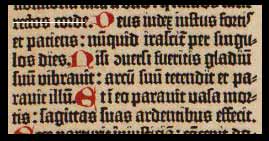 Deus iudex iustus fortis
et patiens: nūquid irascit᷑ per singu-
los dies. Nisi ꝯversi fueritis gladiū
suū vibrauit: arcū suū tetendit et pa-
rauit illū. Et ī eo parauit vasa mor-
tis: sagittas suas ardentibus effecit.